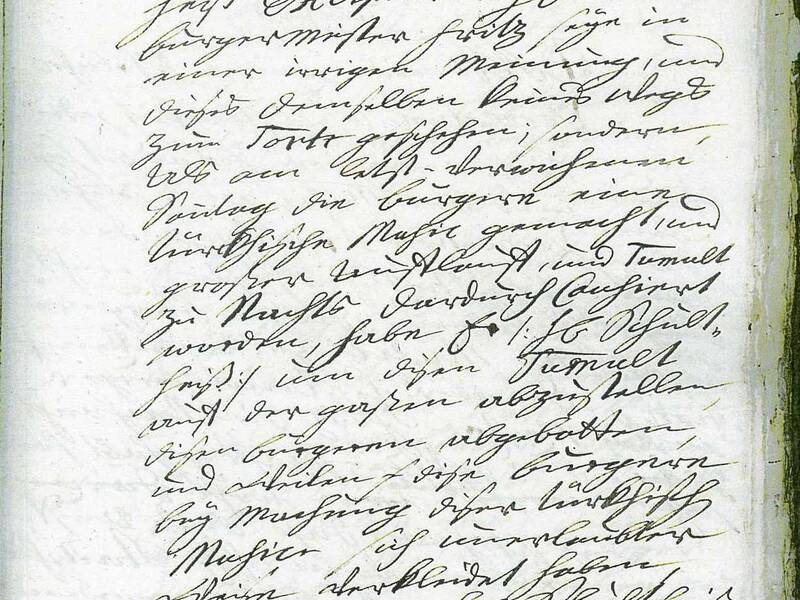 burgermeister Fritz seye in
einer irrigen Meinung, und
dieses demselben keines Wegs
zum Torte geschehen; sondern,
als am letst-verwichenen
Sontag die burgere eine
türkhische Music gemacht, und
großer Aufflauff, und Tumult
zu Nachts dardurch Causiert
worden, habe Er /: H Schult-
heiß :/ um disen Tumult
auf der gaßen abzustellen,
disen burgeren abgebotten,
und weilen dise burgere
bey Machung diser türkhisch
Music sich unerlaubter
Weise verkleidet haben,